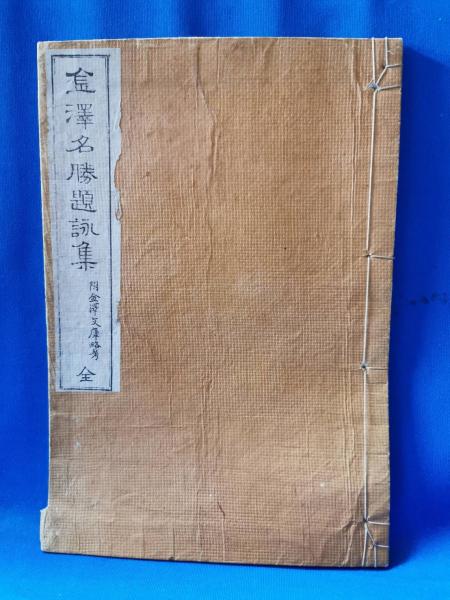 金澤名勝題詠集
附金澤文庫略考
全